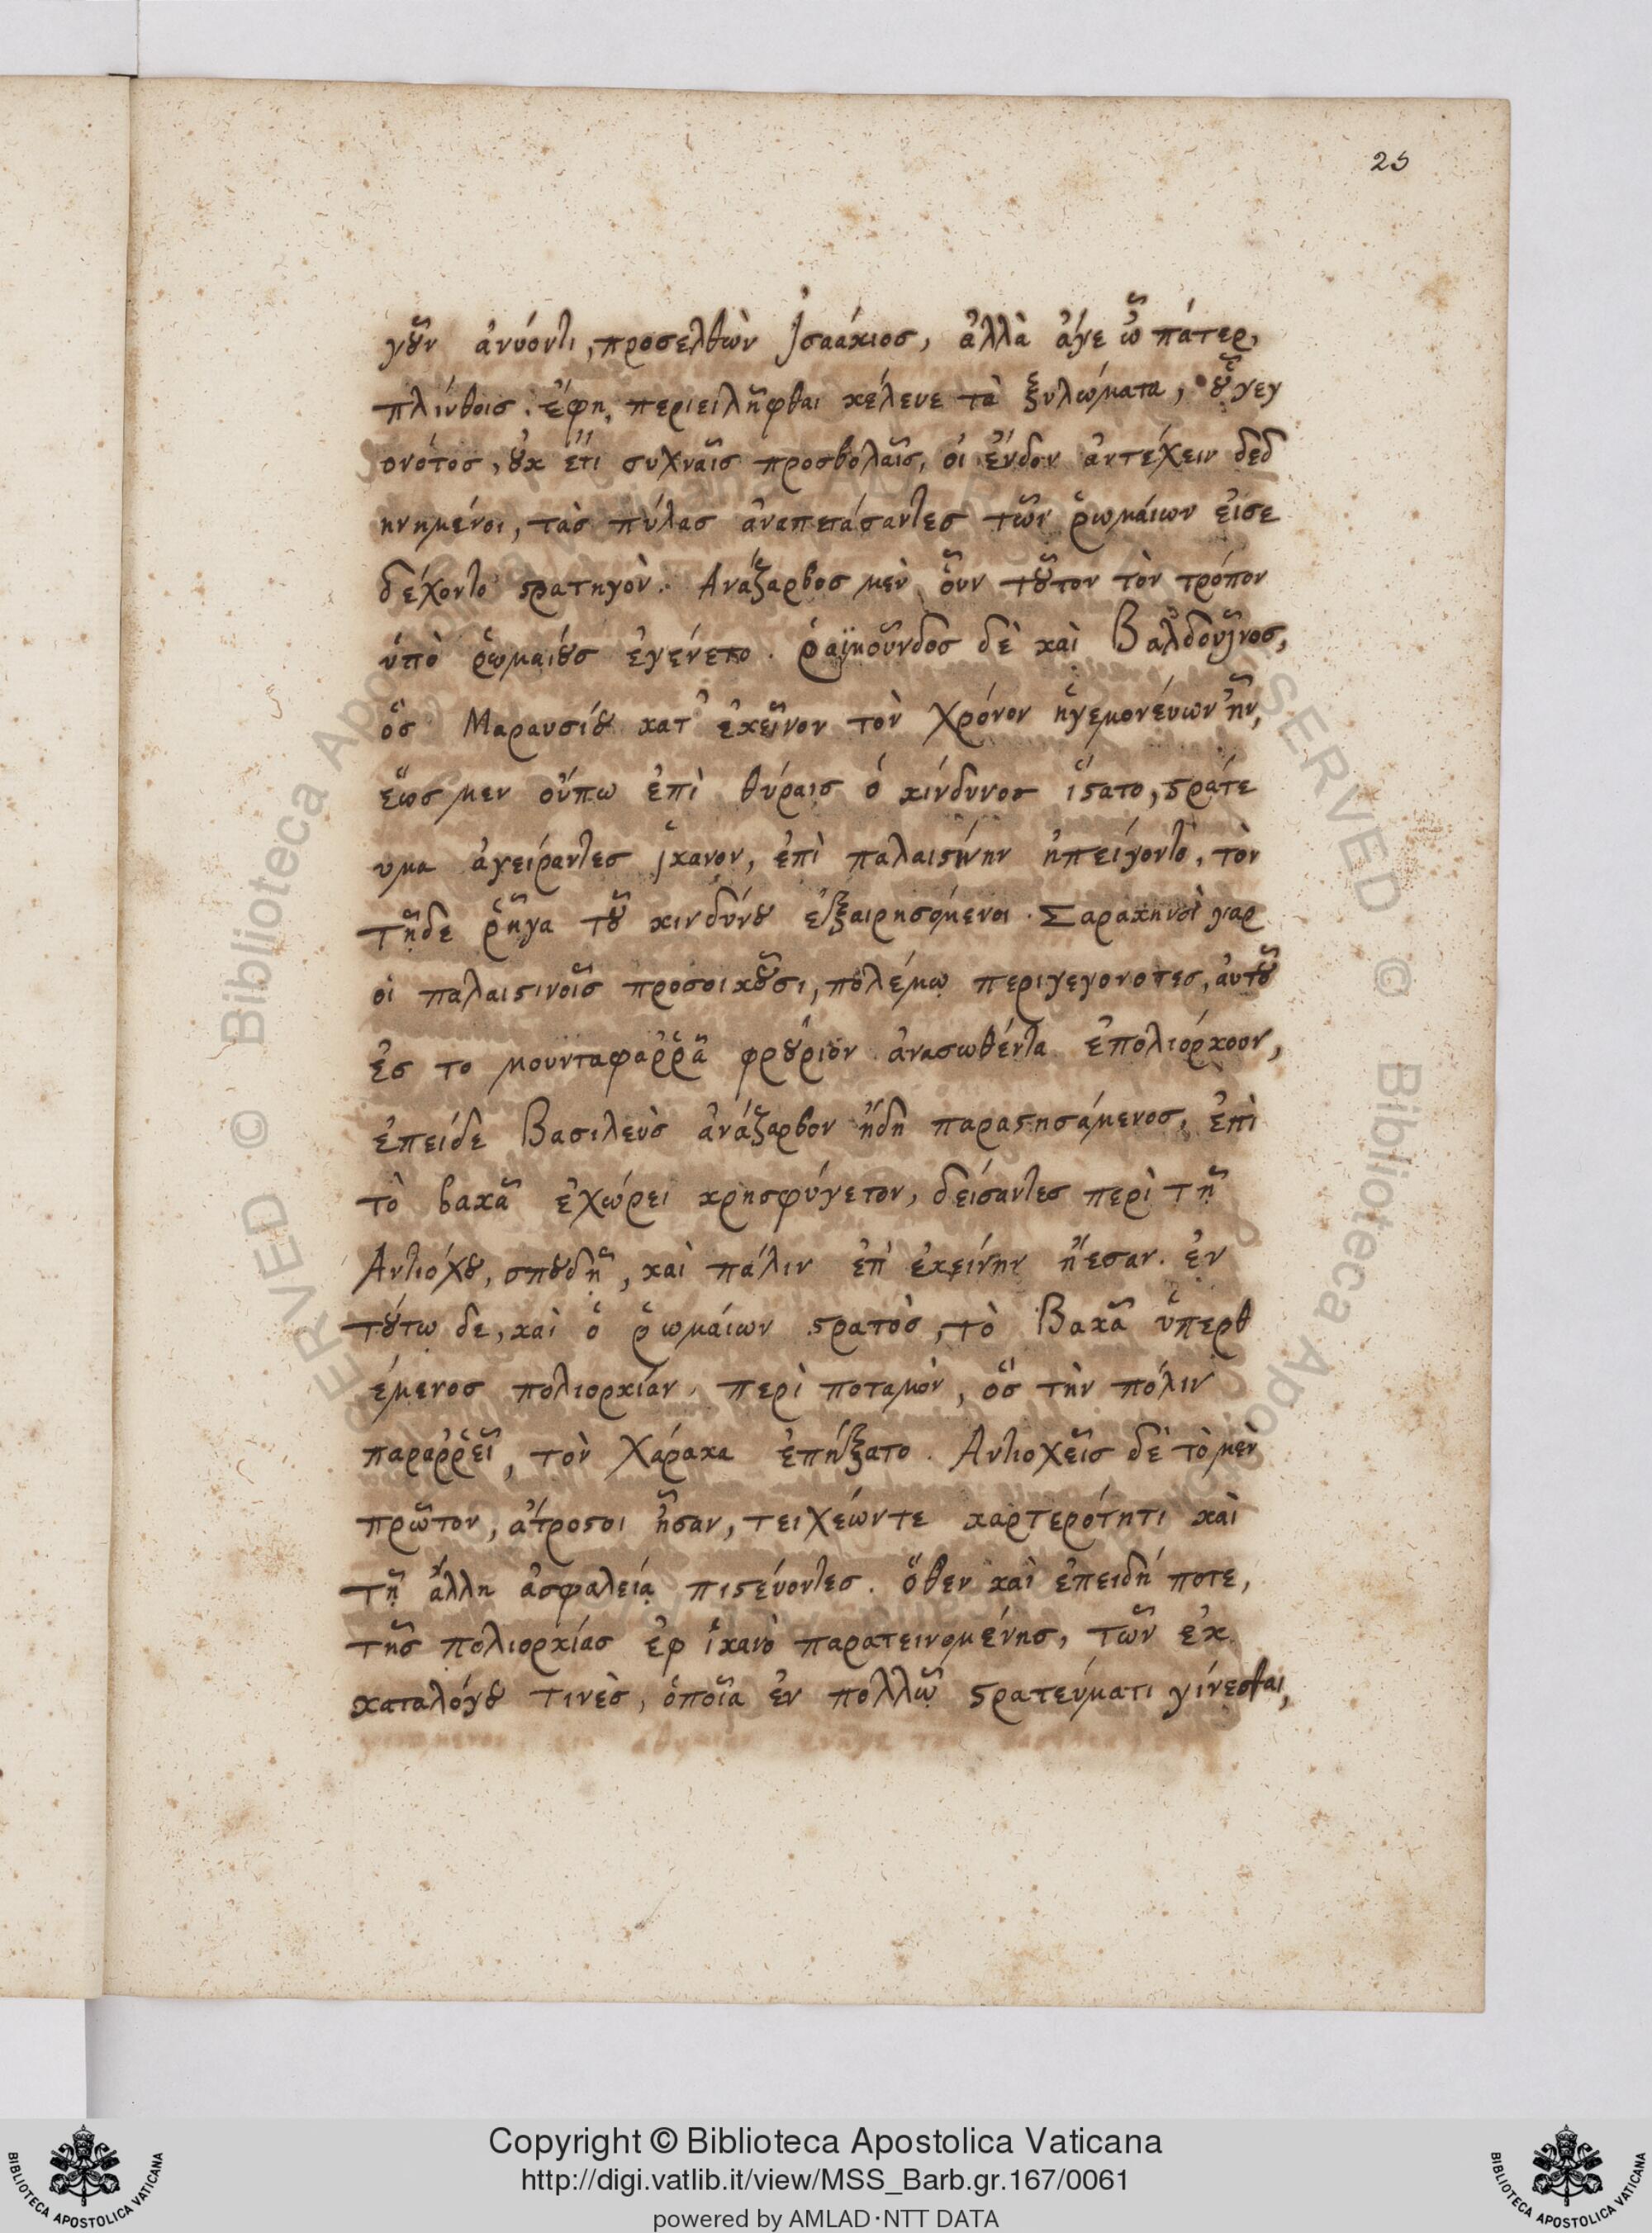 25
γοῦν ἀνύοντι, προσελθὼν Ἰσαάκιος, ἀλλὰ ἄγε ὦ πάτερ,
πλίνθοισ. ἔφη, περιειλῆφθαι κέλευε τὰ ξυλώματα, οὗ γεγ
ονότος, οὐκ ἔτι συχναῖσ προσβολαῖσ, οἱ ἔνδον ἀντέχειν δεδ
ηνημένοι, τὰσ πύλασ ἀναπετάσαντεσ τῶν ῥωμάιων ἐισε
δέχοντο στρατηγὸν. Ἀνάζαρβοσ μὲν ὂυν τοῦτον τὸν τρόπον
ὑπὸ ῥωμαίουσ ἐγένετο. ῥαϊμοῦνδοσ δὲ καὶ Βαλδουῖνοσ,
ὃσ Μαρασίου κατ' ἐκεῖνον τὸν χρόνον ἡγεμονέυων ἦν,
ἕωσ μεν οὔπω ἐπὶ θύραισ ὁ κίνδυνοσ ἵστατο, στράτε
υμα ἀγείραντεσ ἱκανον, ἐπὶ παλαιστίνην ἠπείγοντο, τὸν
τῇδε ῥῆγα τοῦ κινδύνου ἐξαιρησόμενοι. Σαρακηνοὶ γαρ
οἱ παλαιστινοῖσ προσοικοῦσι, πολέμῳ περιγεγονοτεσ, ἀυτοῦ
ἐσ το μουνταφαῤῥᾶ φρούριον ἀνασωθέντα ἐπολιόρκουν,
ἐπείδε Βασιλεὺσ ἀνάζαρβον ἤδη παραστησάμενοσ, ἐπὶ
τὸ βακᾶ ἐχώρει κρησφύγετον, δείσαντεσ περὶ τῇ
Ἀντιόχου, σπουδῇ, καὶ πάλιν ἐπ' ἐκείνην ἤεσαν. ἐν
τούτῳ δε, καὶ ὁ ῥωμάιων στρατὸσ, τὸ Βακᾶ ὑπερθ
έμενοσ πολιορκίαν, περὶ ποταμὸν, ὃσ τὴν πόλιν
παραῤῥεῖ, τὸν χάρακα ἐπήξατο. Ἀντιοχεῖσ δὲ τὸ μὲν
πρῶτον, ἄτροστοι ἦσαν, τειχέων τε καρτερότητι καὶ
τῇ ἄλλη ἀσφαλείᾳ πιστεύοντεσ. ὅθεν καὶ ἐπειδή ποτε,
τῆσ πολιορκίασ ἐφ ἱκανὸ παρατεινομένησ, τῶν ἐκ
καταλόγου τινὲσ, ὁποῖα ἐν πολλῷ στρατεύματι γίνεσθαι,
Copyright © Biblioteca Apostolica Vaticana
http://digi.vatlib.it/view/MSS_Barb.gr.167/0061
powered by AMLAD·NTT DATA
BIBLIOTECA APOSTOLICA VATICANA
BIBLIOTECA APOSTOLICA VATICANA